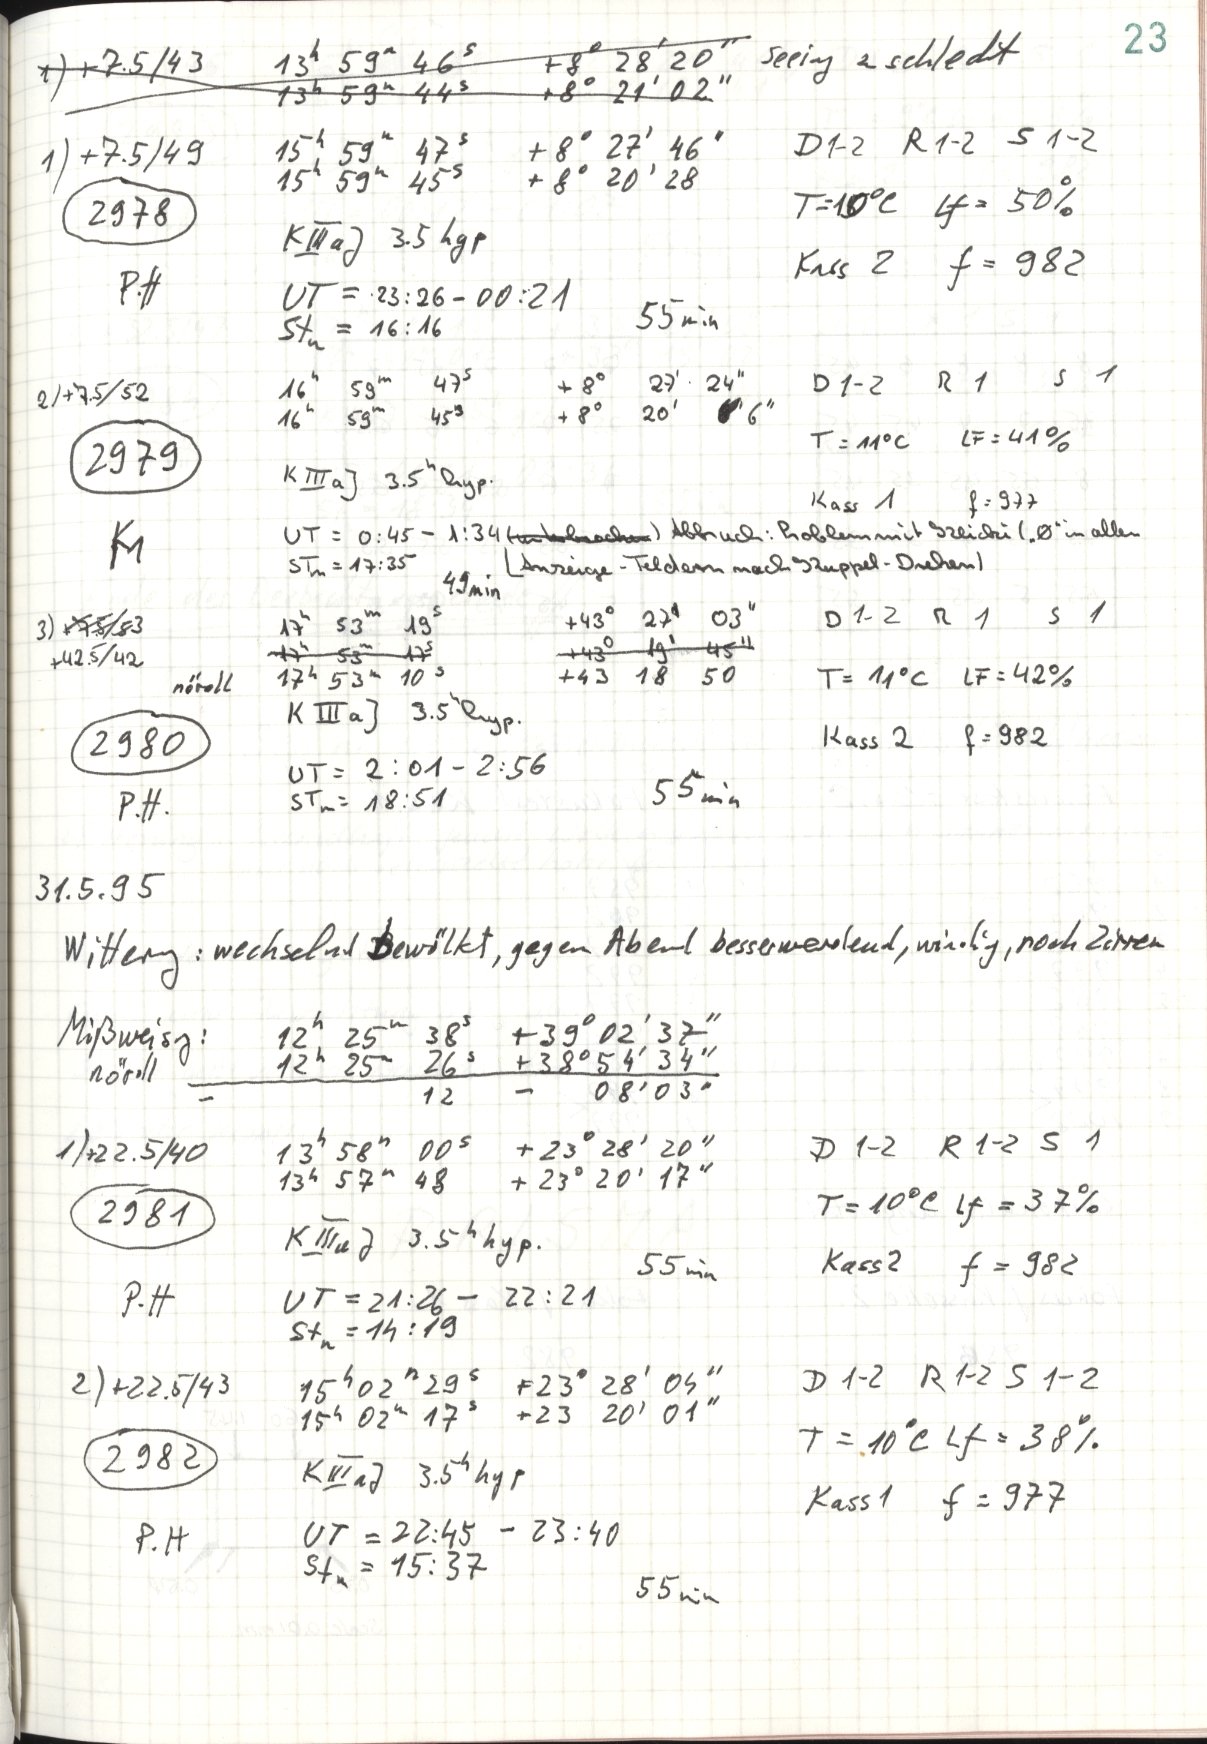 23
1) +7.5/43 13h 59m 46s +8° 28' 20" seeing z schlecht
13h 59m 44s +8° 21' 02"
1) +7.5/49 15h 59m 47s +8° 27' 46" D 1-2 R 1-2 S 1-2
15h 59m 45s +8° 20' 28
2978 T=10°C Lf = 50%
K III a J 3.5 hyp
Kass 2 f = 982
P.H UT = 23:26 - 00:21
Stm = 16:16 55 min
2) +7.5/52 16h 59m 47s +8° 27' 24" D 1-2 R 1 S 1
16h 59m 45s +8° 20' 6"
2979 T = 11°C LF = 41%
K III a J 3.5h hyp.
Kass 1 f = 977
UT = 0:45 - 1:34 (unterbrochen) Abbruch: Problem mit ("Ø" in allen
STm = 17:35 Anzeige-Feldern nach Kuppel-Drehen)
49 min
3) +7.5/53 17h 53m 19s +43° 27' 03" D 1-2 R 1 S 1
+42.5/42 17h 53m 17s +43° 19' 45"
nördl 17h 53m 10s +43 18 50 T = 11°C LF = 42%
K III a J 3.5h hyp.
2980 Kass 2 f = 982
UT = 2:01 - 2:56
P.H. STm = 18:51 55 min
31.5.95
Witterung: wechselnd Bewölkt, gegen Abend besserwerdend, windig, noch Zirren
Mißweisg: 12h 25m 38s +39° 02' 37"
nördl 12h 25m 26s +38° 54' 34"
- 12 - 08' 03"
1) +22.5/40 13h 58m 00s +23° 28' 20" D 1-2 R 1-2 S 1
13h 57m 48 +23° 20' 17"
2981 T = 10°C Lf = 37%
K III a J 3.5h hyp.
55 min Kass 2 f = 982
P.H UT = 21:26 - 22:21
Stm = 14:19
2) +22.5/43 15h 02m 29s +23° 28' 04" D 1-2 R 1-2 S 1-2
15h 02m 17s +23 20' 01"
2982 T = 10°C Lf = 38%
K III a J 3.5h hyp
Kass 1 f = 977
P.H UT = 22:45 - 23:40
Stm = 15:37
55 min